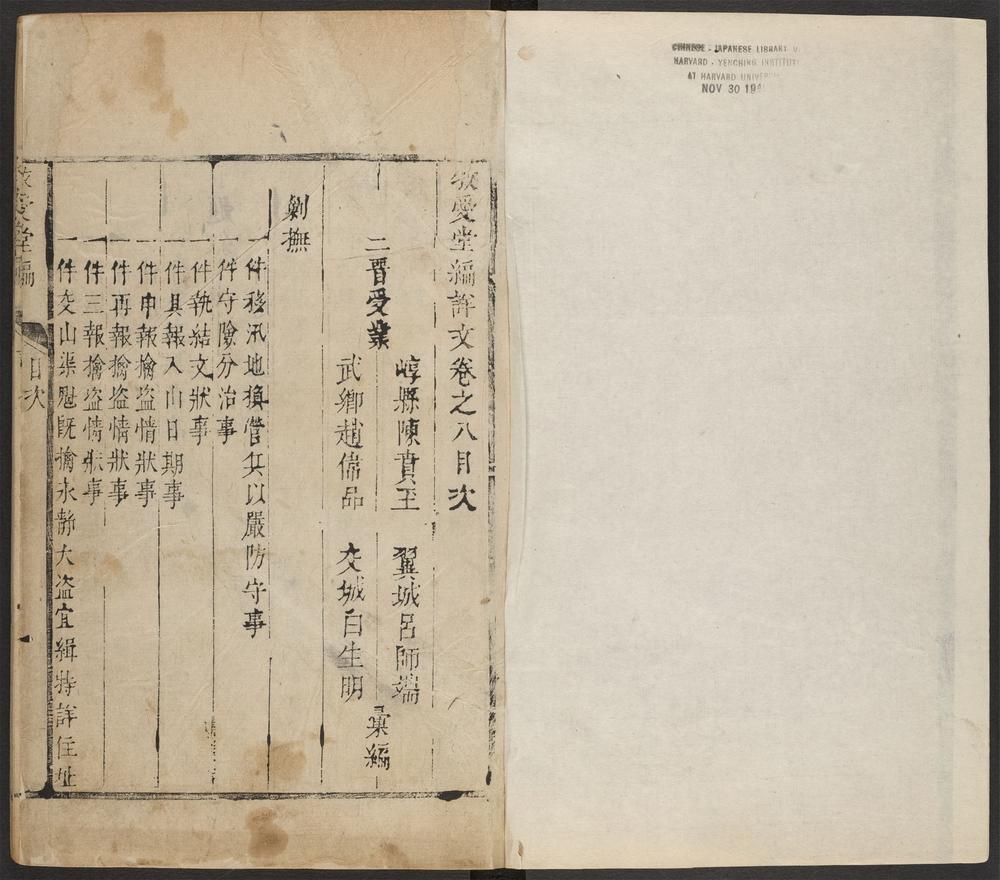 CHINESE - JAPANESE LIBRARY
HARVARD - YENCHING INSTITUTE
AT HARVARD UNIVER
NOV 30 19
牧愛堂編詳文卷之八目次
崞縣陳賁至 翼城呂師端
二晉受業
武鄉趙偉品 交城白生明
彙編
剿撫
一件移汛地換營兵以嚴防守事
一件守險分治事
一件執結文狀事
一件具報入山日期事
一件申報擒盜情狀事
一件再報擒盜情狀事
一件三報擒盜情狀事
一件交山渠魁既擒永靜大盜宜緝特詳住址
牧愛堂編
目次